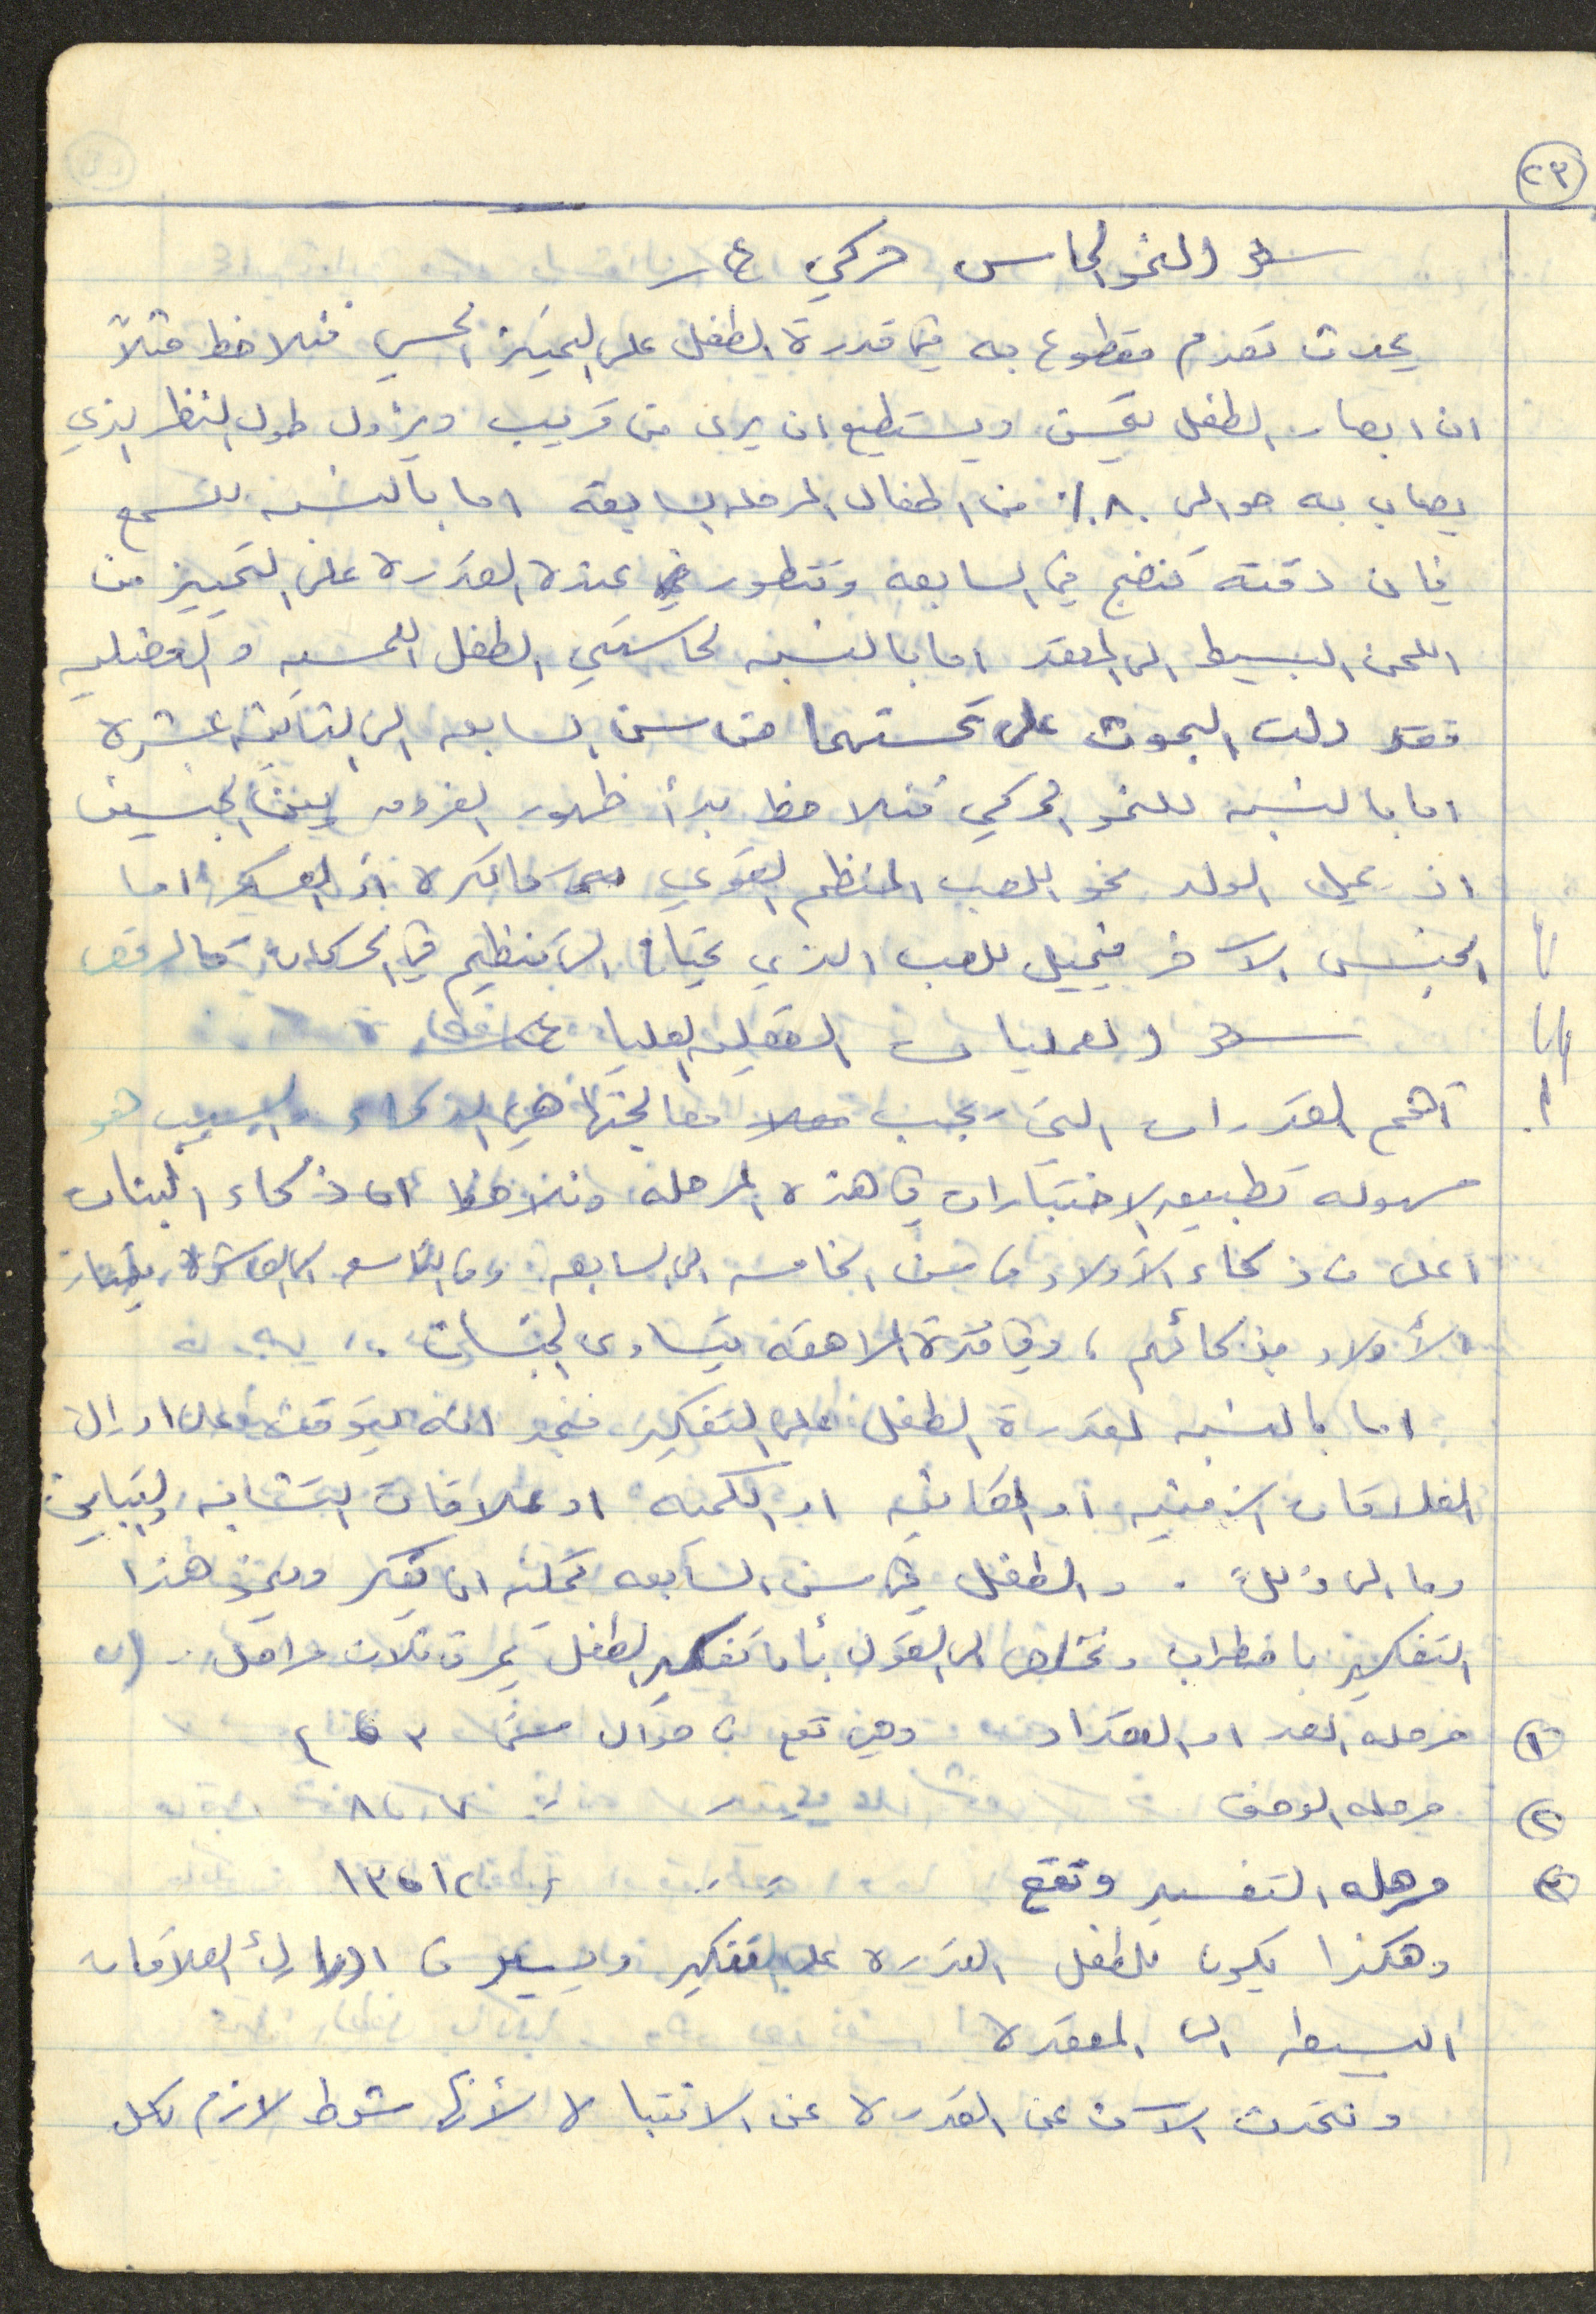 ٢٣
النمو الحاس حركي
يحدث تقدم مقطوع به في قدرة الطفل على التمييز الحسي فنلاحظ مثلاً
ان ابصار الطفل يتحسن ويستطيع ان يرى من قريب ويزول طول النظر الذي
يصاب به حوالي ٨٠٪ من اطفال المرحلة السابقة اما بالنسبه للسمع
فان دقته تنضج في السابعه وتتطور عنده القدره على التمييز من
اللحن البسيط الى المعقد اما بالنسبه لحاستي الطفل اللمسيه والعضليه
فقد دلت البحوث على تحسنهما من سن السابعه الى الثانيه عشره
اما بالنسبه للنمو الحركي فنلاحظ بدأ ظهور الفروق بين الجنسين
اذ يميل الولد نحو اللعب المنظم القوي كالكره او العسكر اما
الجنس الآخر فيميل للعب الذي يحتاج الى تنظيم في الحركات كالرقص
العمليات العقليه العليا
أهم القدرات التي يجب معالجتها هي الذكاء والسبب هو
سهوله تطبيق الاختبارات في هذه المرحله ونلاحظ ان ذكاء البنات
اعلى من ذكاء الأولاد من سن الخامسه الى السابعه ومن التاسعه الى العاشرة يمتاز
الأولاد بذكائهم ، وفي فترة المراهقه يتساوى الجنسان .
اما بالنسبه لقدرة الطفل على التفكير فنجد انه يتوقف على ادراك
العلاقات الزمنيه او المكانيه او الكميه او علاقات التشابه والتباين
وما الى ذلك . والطفل في سن السابعه يمكنه ان يفكر وينمو هذا
التفكير باضطراب ونخلص الى القول بأن تفكير الطفل يمر في ثلاث مراحل .
١ مرحله العد او التعداد وهي تقع في حوالي سن ٣ ٤
٢ مرحله الوصف ٧ ٨
٣ مرحله التفسير وتقع ١٢ ١٣
وهكذا يكون للطفل القدره على التفكير ويسير من ادراك العلاقات
البسيطه الى المعقده
ونتحدث الآن عن القدره عن الانتباه لأنها شرط لازم لكل